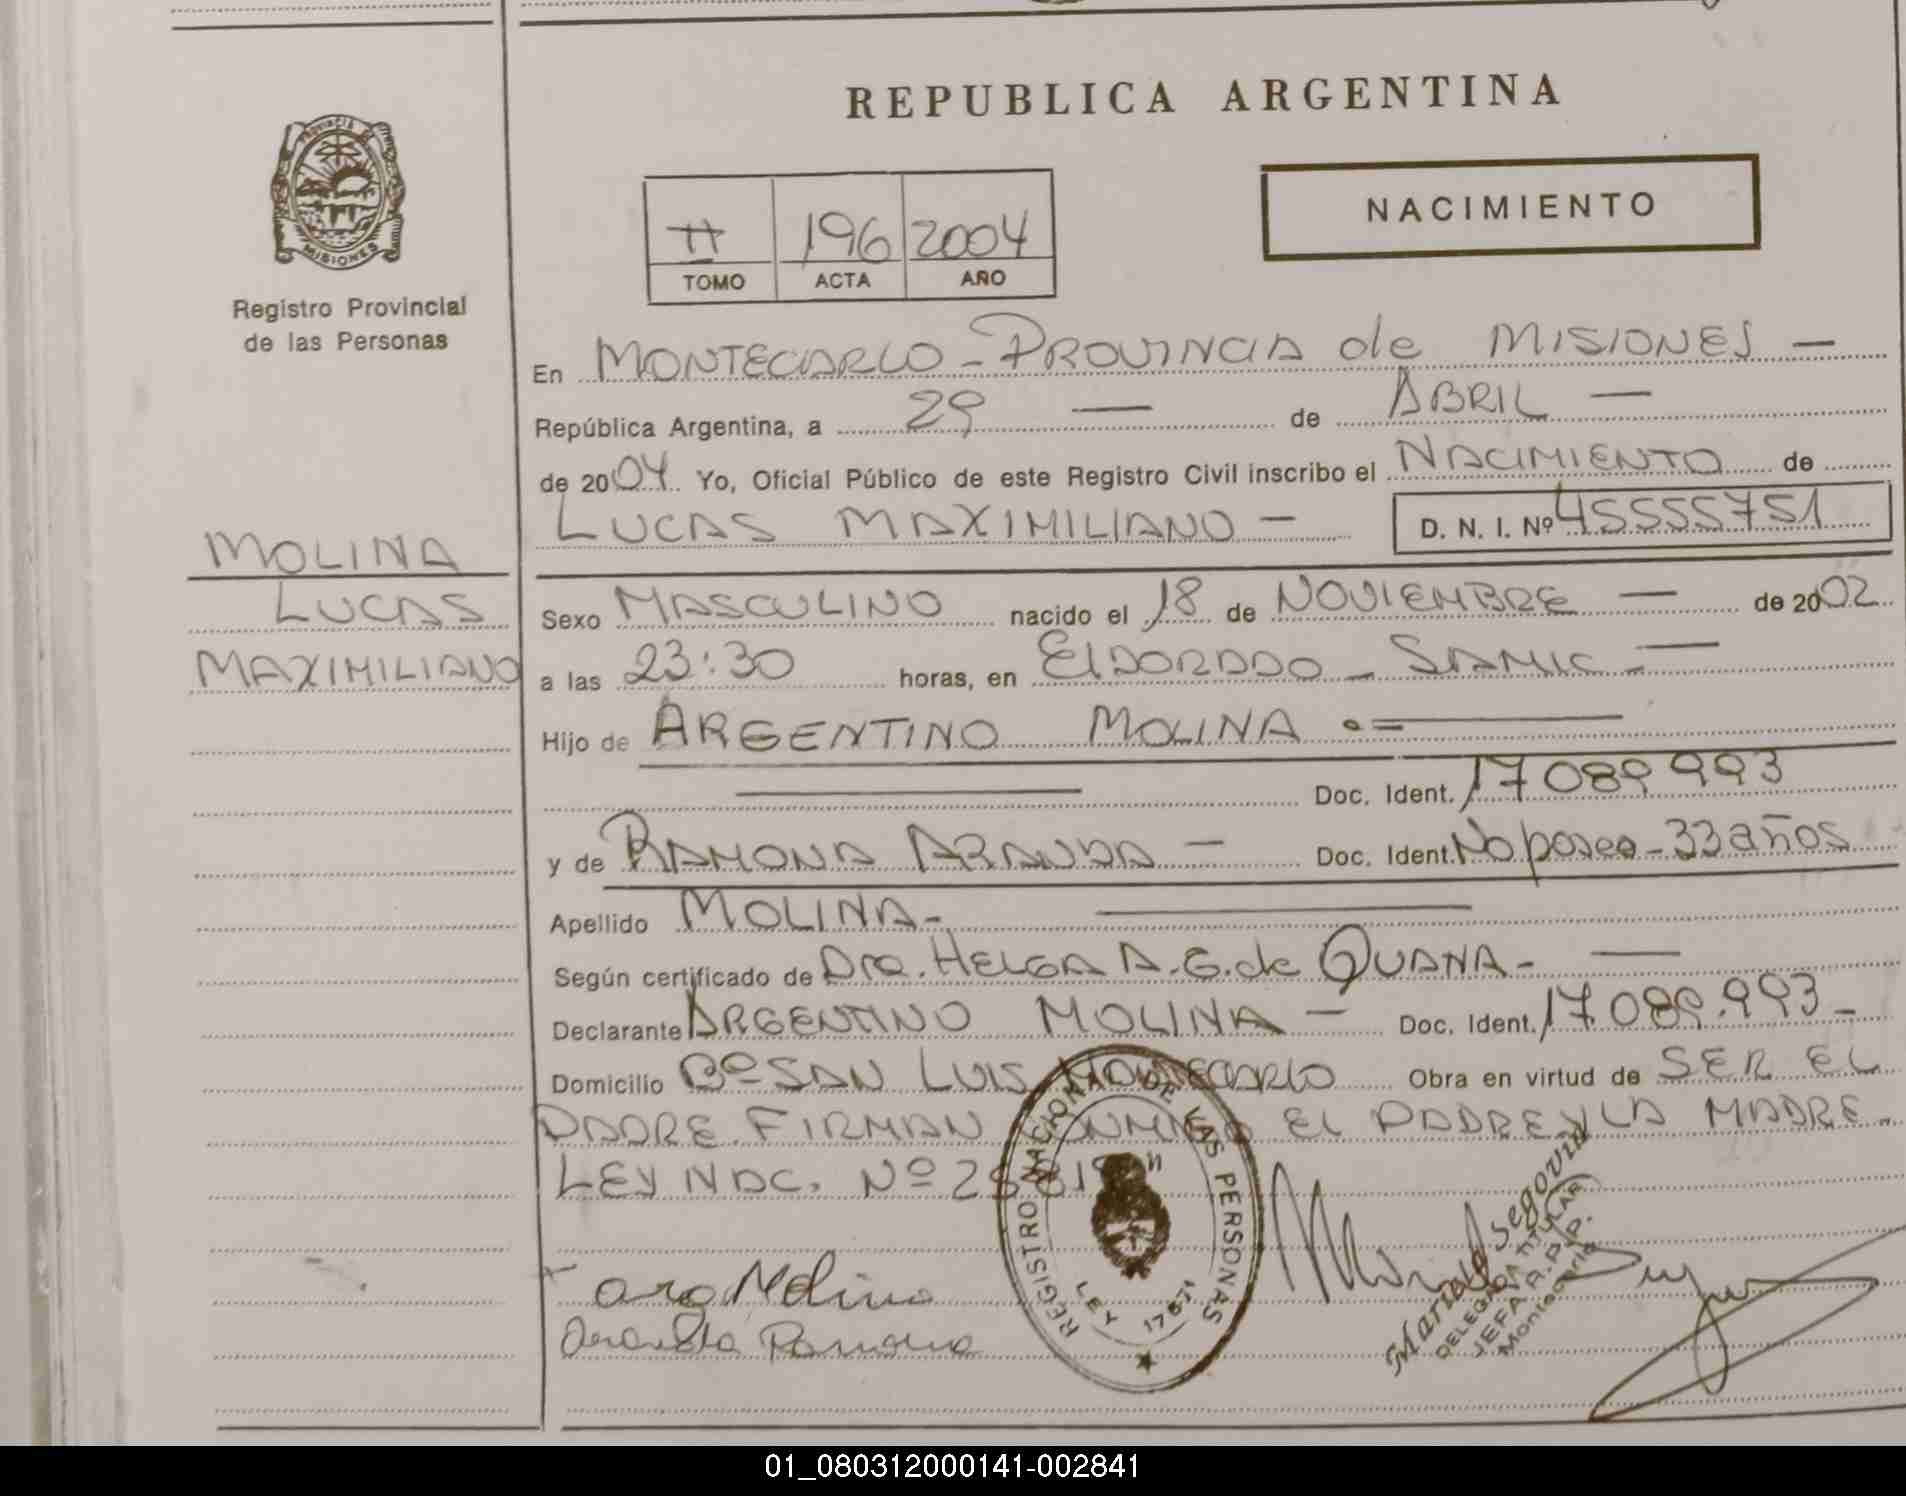 REPUBLICA ARGENTINA
PROVINCIA DE
MISIONES
Registro Provincial
de las Personas
II 196 2004
TOMO ACTA AÑO
NACIMIENTO
En MONTECARLO - PROVINCIA de MISIONES —
República Argentina, a 29 — de ABRIL —
de 2004 Yo, Oficial Público de este Registro Civil inscribo el NACIMIENTO de
LUCAS MAXIMILIANO — D. N. I. Nº 45555751
MOLINA
LUCAS
MAXIMILIANO
Sexo MASCULINO nacido el 18 de NOVIEMBRE — de 2002
a las 23:30 horas, en ELDORADO - SAMIC -
Hijo de ARGENTINO MOLINA
Doc. Ident. 17089993
y de RAMONA ARANDA — Doc. Ident. No posee - 33 años
Apellido MOLINA -
Según certificado de Dra. HELGA A. G. de QUANA -
Declarante ARGENTINO MOLINA — Doc. Ident. 17.089.993 -
Domicilio Bº SAN LUIS MONTECARLO Obra en virtud de SER EL
PADRE. FIRMAN EL PADRE Y LA MADRE.
LEY NAC. Nº
Molina
Ramona
REGISTRO NACIONAL DE LAS PERSONAS
LEY 17671
Segovia
DELEGADA TITULAR
JEFA R.P.P.
Montecarlo
01_080312000141-002841